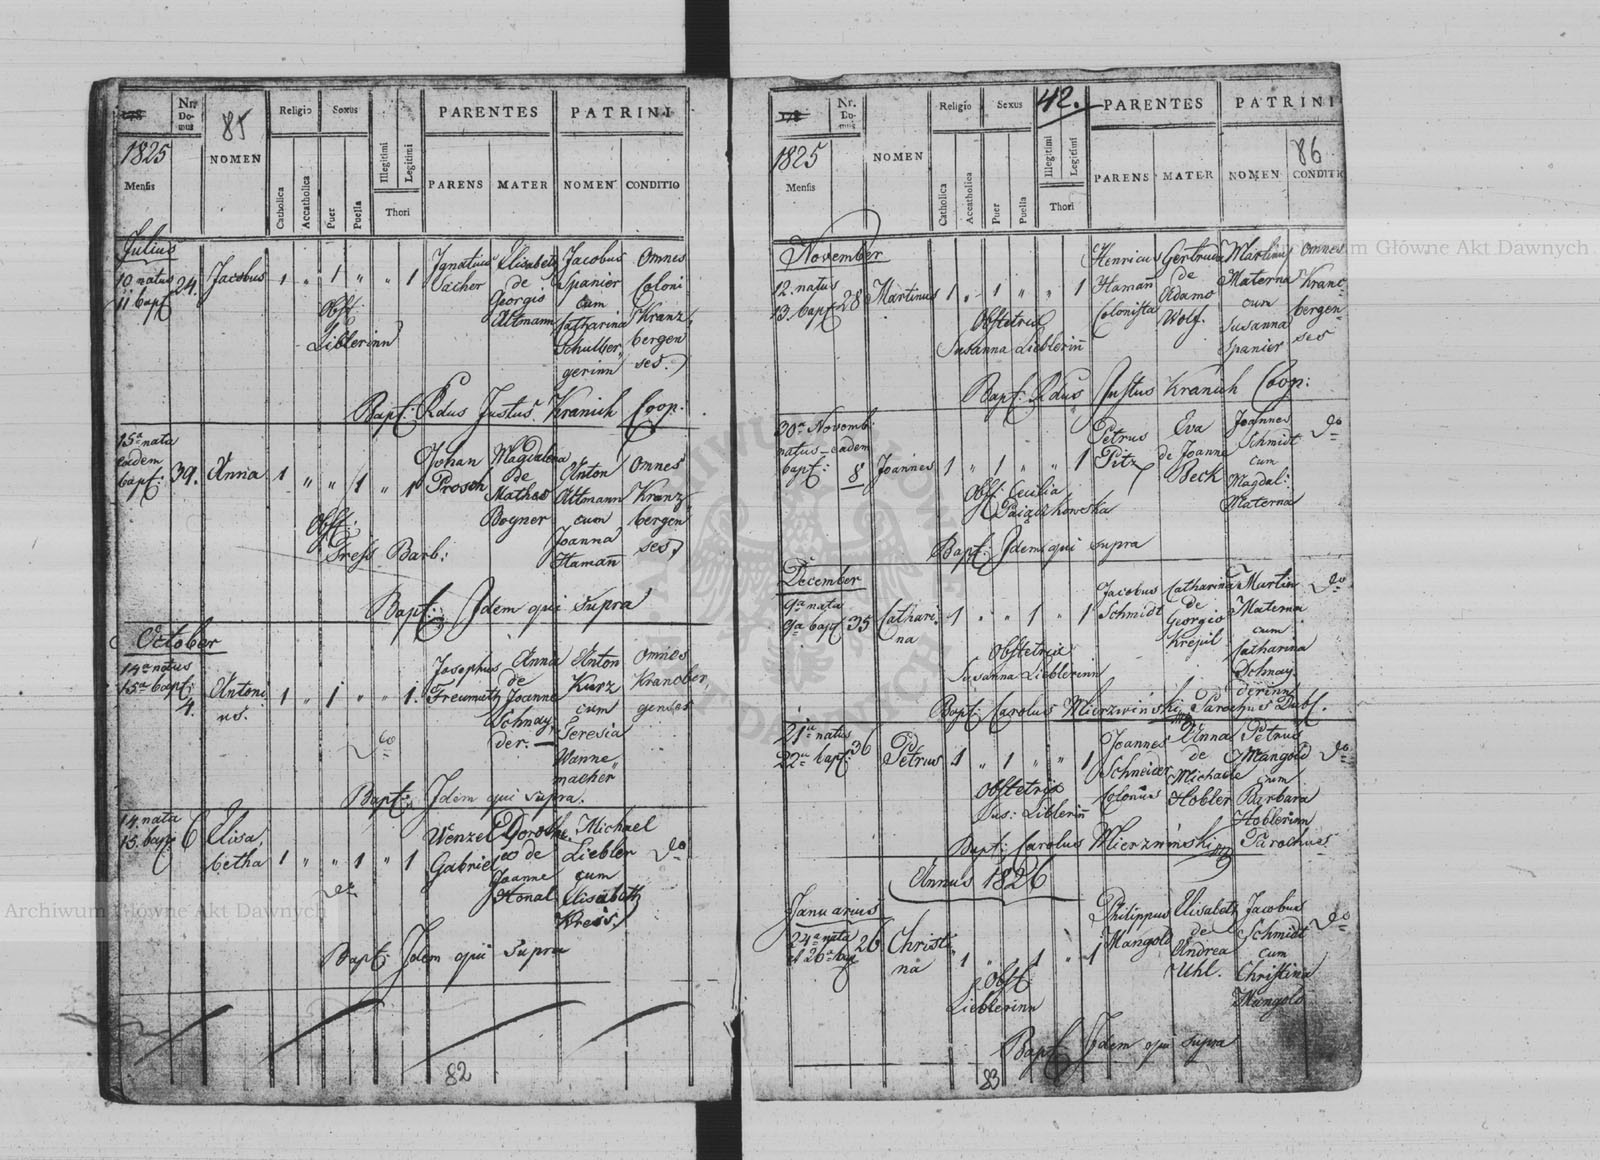 Nr. Domus
85
Religio
Sexus
PARENTES
PATRINI
1825
Mensis
NOMEN
Catholica
Accatholica
Puer
Puella
Illegitimi
Legitimi
Thori
PARENS
MATER
NOMEN
CONDITIO
Julius
10 natus
11 bapt
24.
Jacobus
1 " 1 " " 1
Ignatius
Elisabeth
de
Georgio
Altmann
Jacobus
Spanier
cum
Catharina
Omnes
Coloni
Kranz
bergen
ses.
Obst:
Liblerinn
gerinn
Bapt: Rdus Justus Kranich Coop:
15a nata
eadem
bapt:
39.
Anna
1 " " 1 " 1
Johan
Prosch
Magdalena
de
Mathes
Bogner
Anton
Altmann
cum
Joanna
Hamañ
Omnes
Kranz
bergen
ses.
Obst:
Tress Barb:
Bapt: Idem qui supra
October
14a natus
15a bapt:
4.
Antoni
us.
1 " 1 " " 1.
Josephus
Freumuth
Anna
de
Joanne
Schnay
der.
Anton
Kurz
cum
Teresia
Wanne
macher
Omnes
Kranzber
genses
do
Bapt: Idem qui supra.
14. nata
15. bapt
6
Elisa
betha
1 " " 1 " 1
Wenzel
Gabriel
Dorothe
de
Joanne
Honal
Michael
Liebler
cum
Elisabeth
Kress.
do
do
Bapt: Idem qui supra
82
Nr. Domus
Religio
Sexus
42.
PARENTES
PATRINI
1825
Mensis
NOMEN
86
Catholica
Accatholica
Puer
Puella
Illegitimi
Legitimi
Thori
PARENS
MATER
NOMEN
CONDITIO
November
12. natus
13 bapt
28
Martinus
1 " 1 " " 1
Henricus
Haman
Colonista
Gertruda
de
Adamo
Wolf.
Martinus
Materna
cum
Susanna
Spanier
Omnes
Kranc
bergen
ses
Obstetrix
Susanna Lieblerin̄
Bapt: Rdus Justus Kranich Coop:
30a Novemb:
natus eadem
bapt:
8
Joannes
1 " 1 " " 1
Petrus
Pitz
Eva
de Joanne
Beck
Joannes
Schmidt
cum
Magdal:
Materna
do
Obst: Cecilia
Bapt: Idem qui supra
December
9a nata
9a bapt
35
Cathari
na
1 " " 1 " 1
Jacobus
Schmidt
Catharina
de
Georgio
Krepil
Martin
Materna
cum
Catharina
Schnay
derinn
do
Obstetrix
Susanna Lieblerinn
Bapt: Carolus Mierzwiński Parochus
21a natus
22a bapt:
36
Petrus
1 " 1 " " 1
Joannes
Schneider
Colonus
Anna
de
Michaele
Hobler
Petrus
Mangold
cum
Barbara
Hoblerinn
do
Obstetrix
Sus: Liblerin̄
Bapt: Carolus Mierzwiński Parochus
Annus 1826
Januarius
24a nata
et 26a bap
26
Christi
na
" 1 " 1 " 1
Philippus
Mangold
Elisabeth
de
Andrea
Uhl.
Jacobus
Schmidt
cum
Christina
Mangold
do
Obst
Lieblerinn
Bapt: Idem qui supra
83
Archiwum Główne Akt Dawnych
Archiwum Główne Akt Dawnych